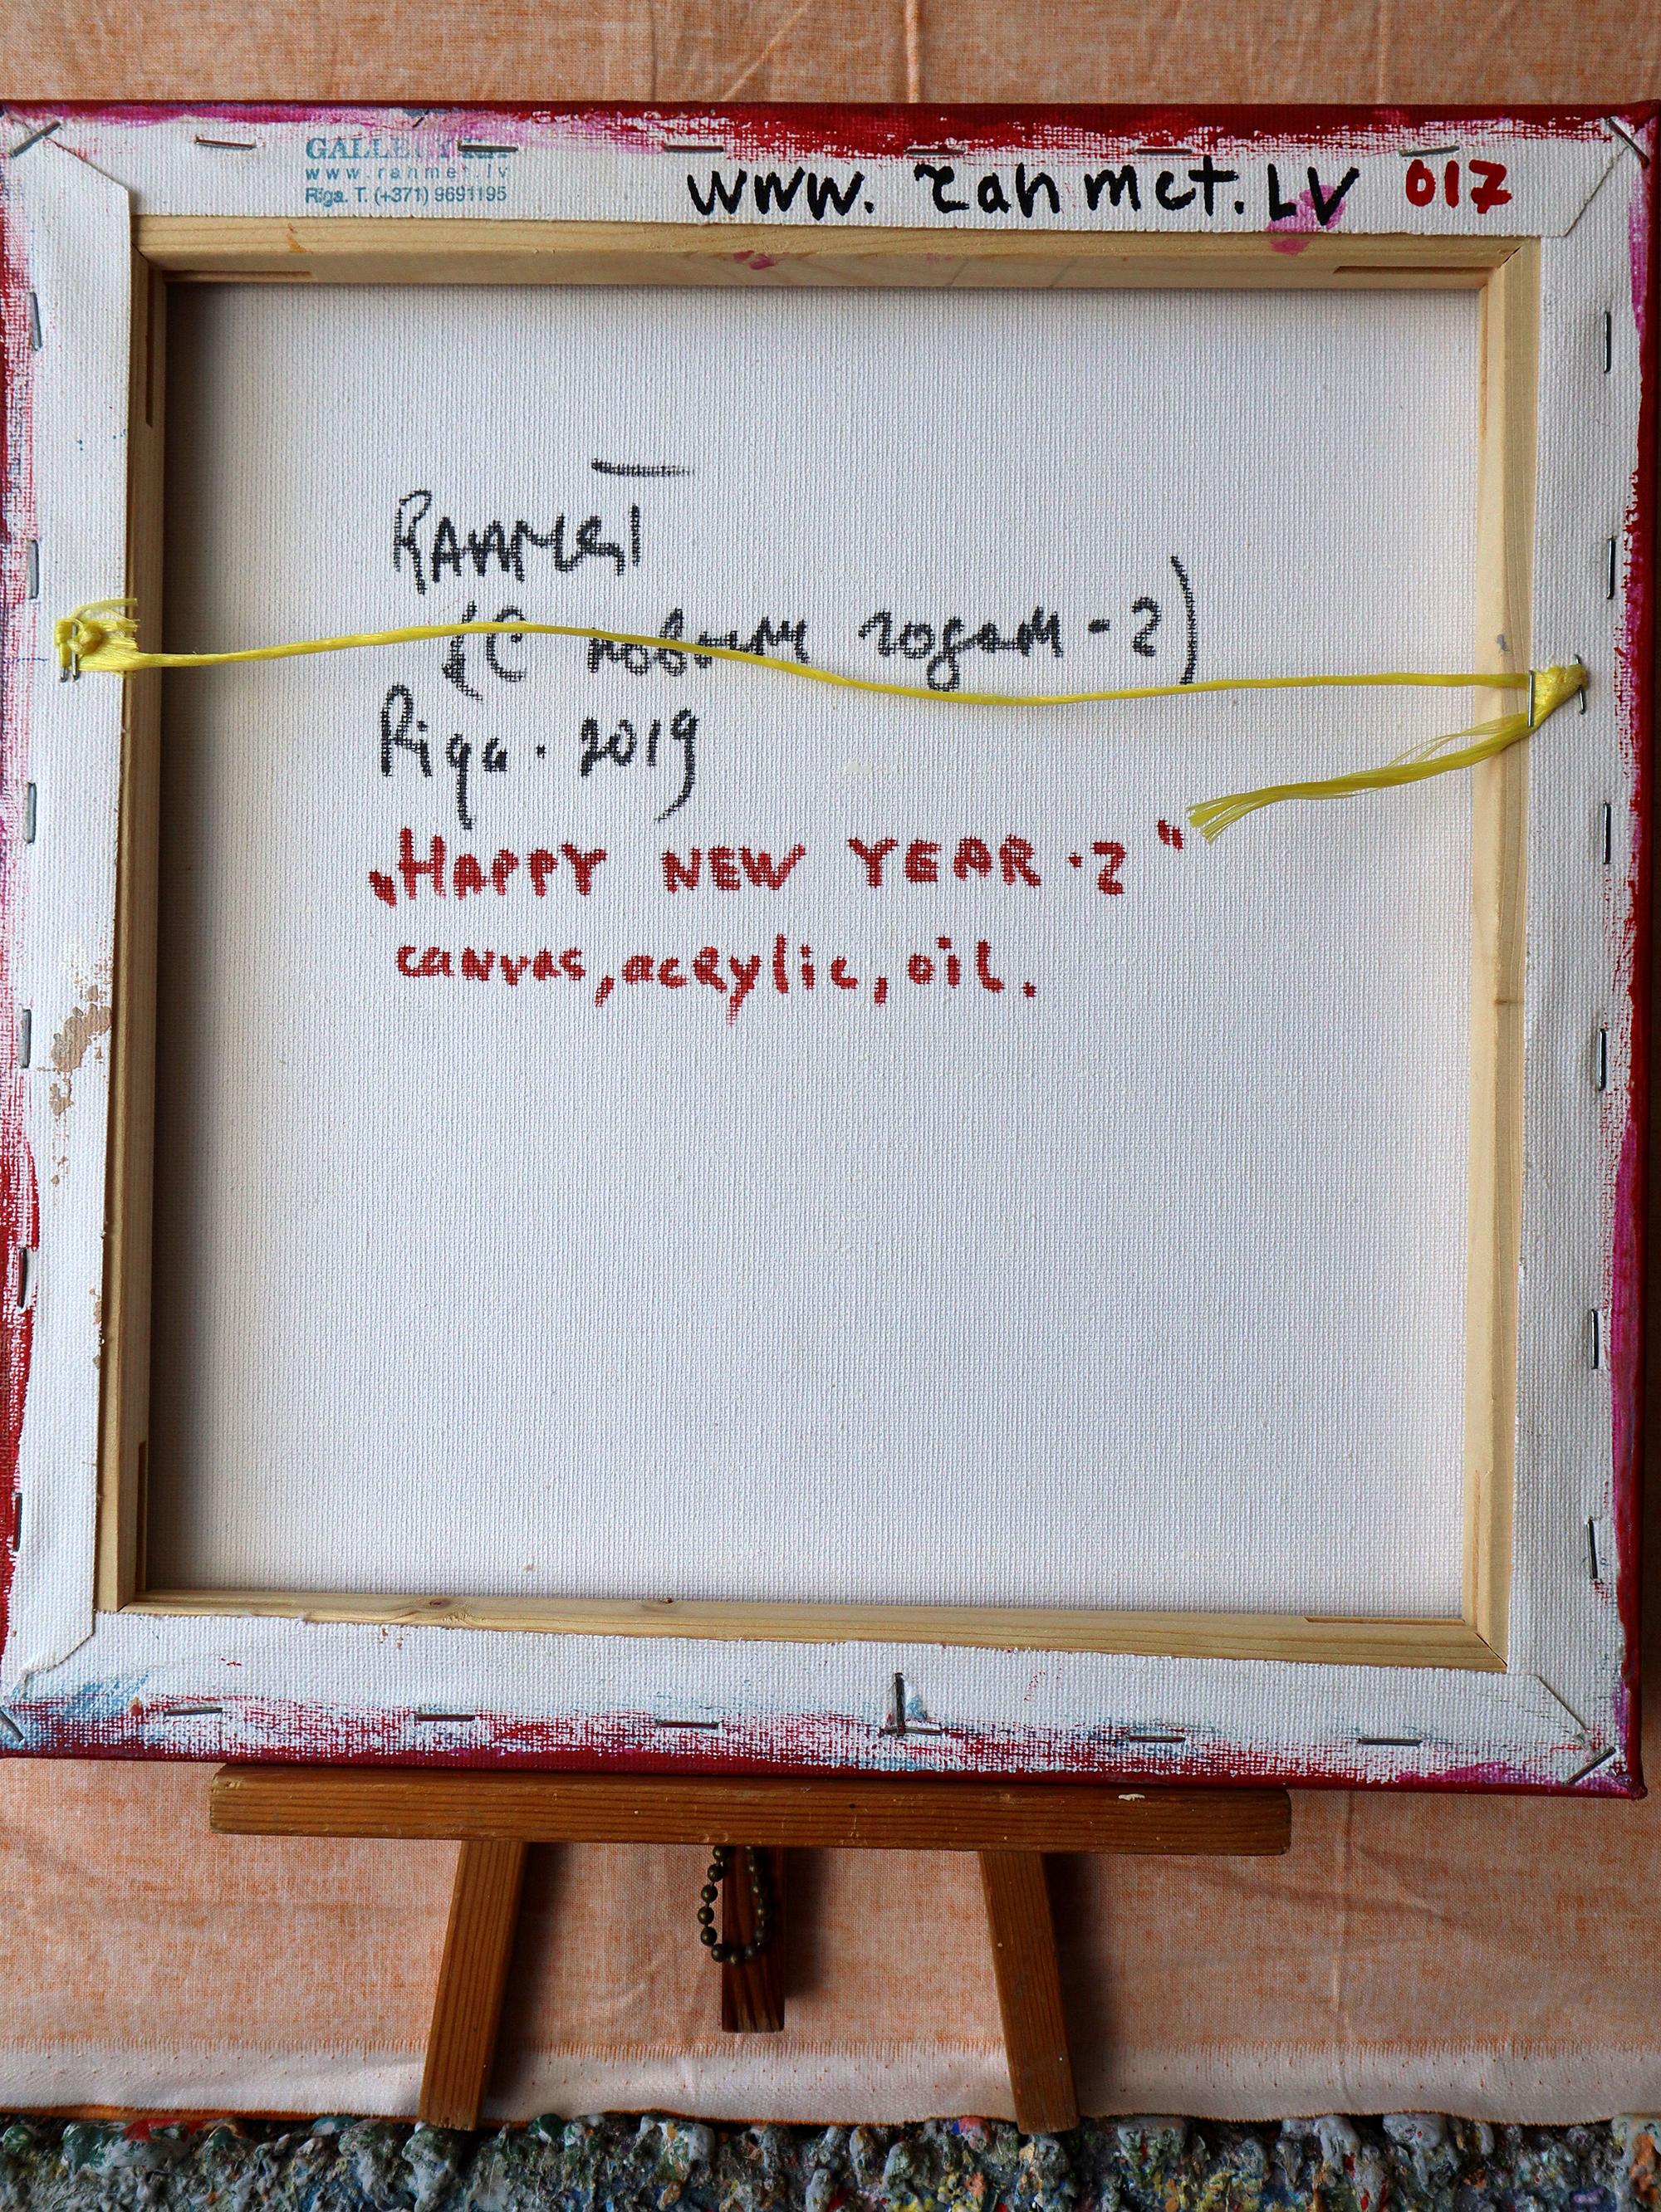 GALLERY
www.rahmet.lv
Riga. T. (+371) 9691195
www. rahmet. LV 017
RAHMET
(С новым годом - 2)
Riga. 2019
„HAPPY NEW YEAR - 2"
canvas, acRylic, oil.